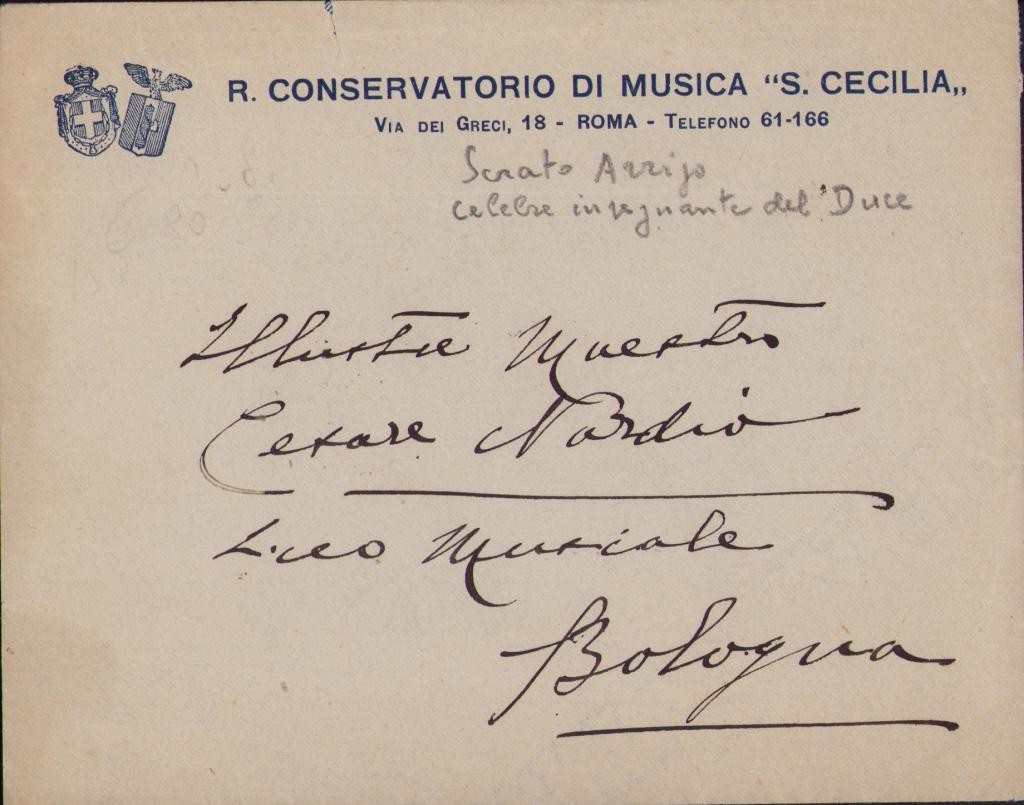 R. CONSERVATORIO DI MUSICA “S. CECILIA„
VIA DEI GRECI, 18 - ROMA - TELEFONO 61-166
Serato Arrigo
celebre insegnante del Duce
Illustre Maestro
Cesare Nordio
Liceo Musicale
Bologna